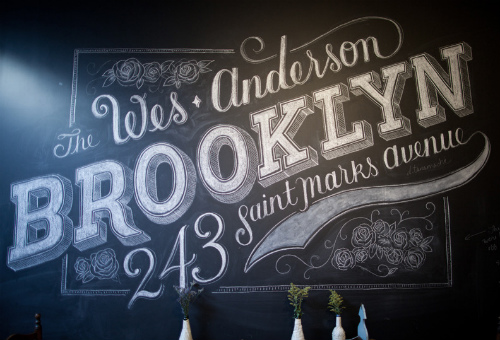 The Wes Anderson
BROOKLYN
243 Saint Marks Avenue